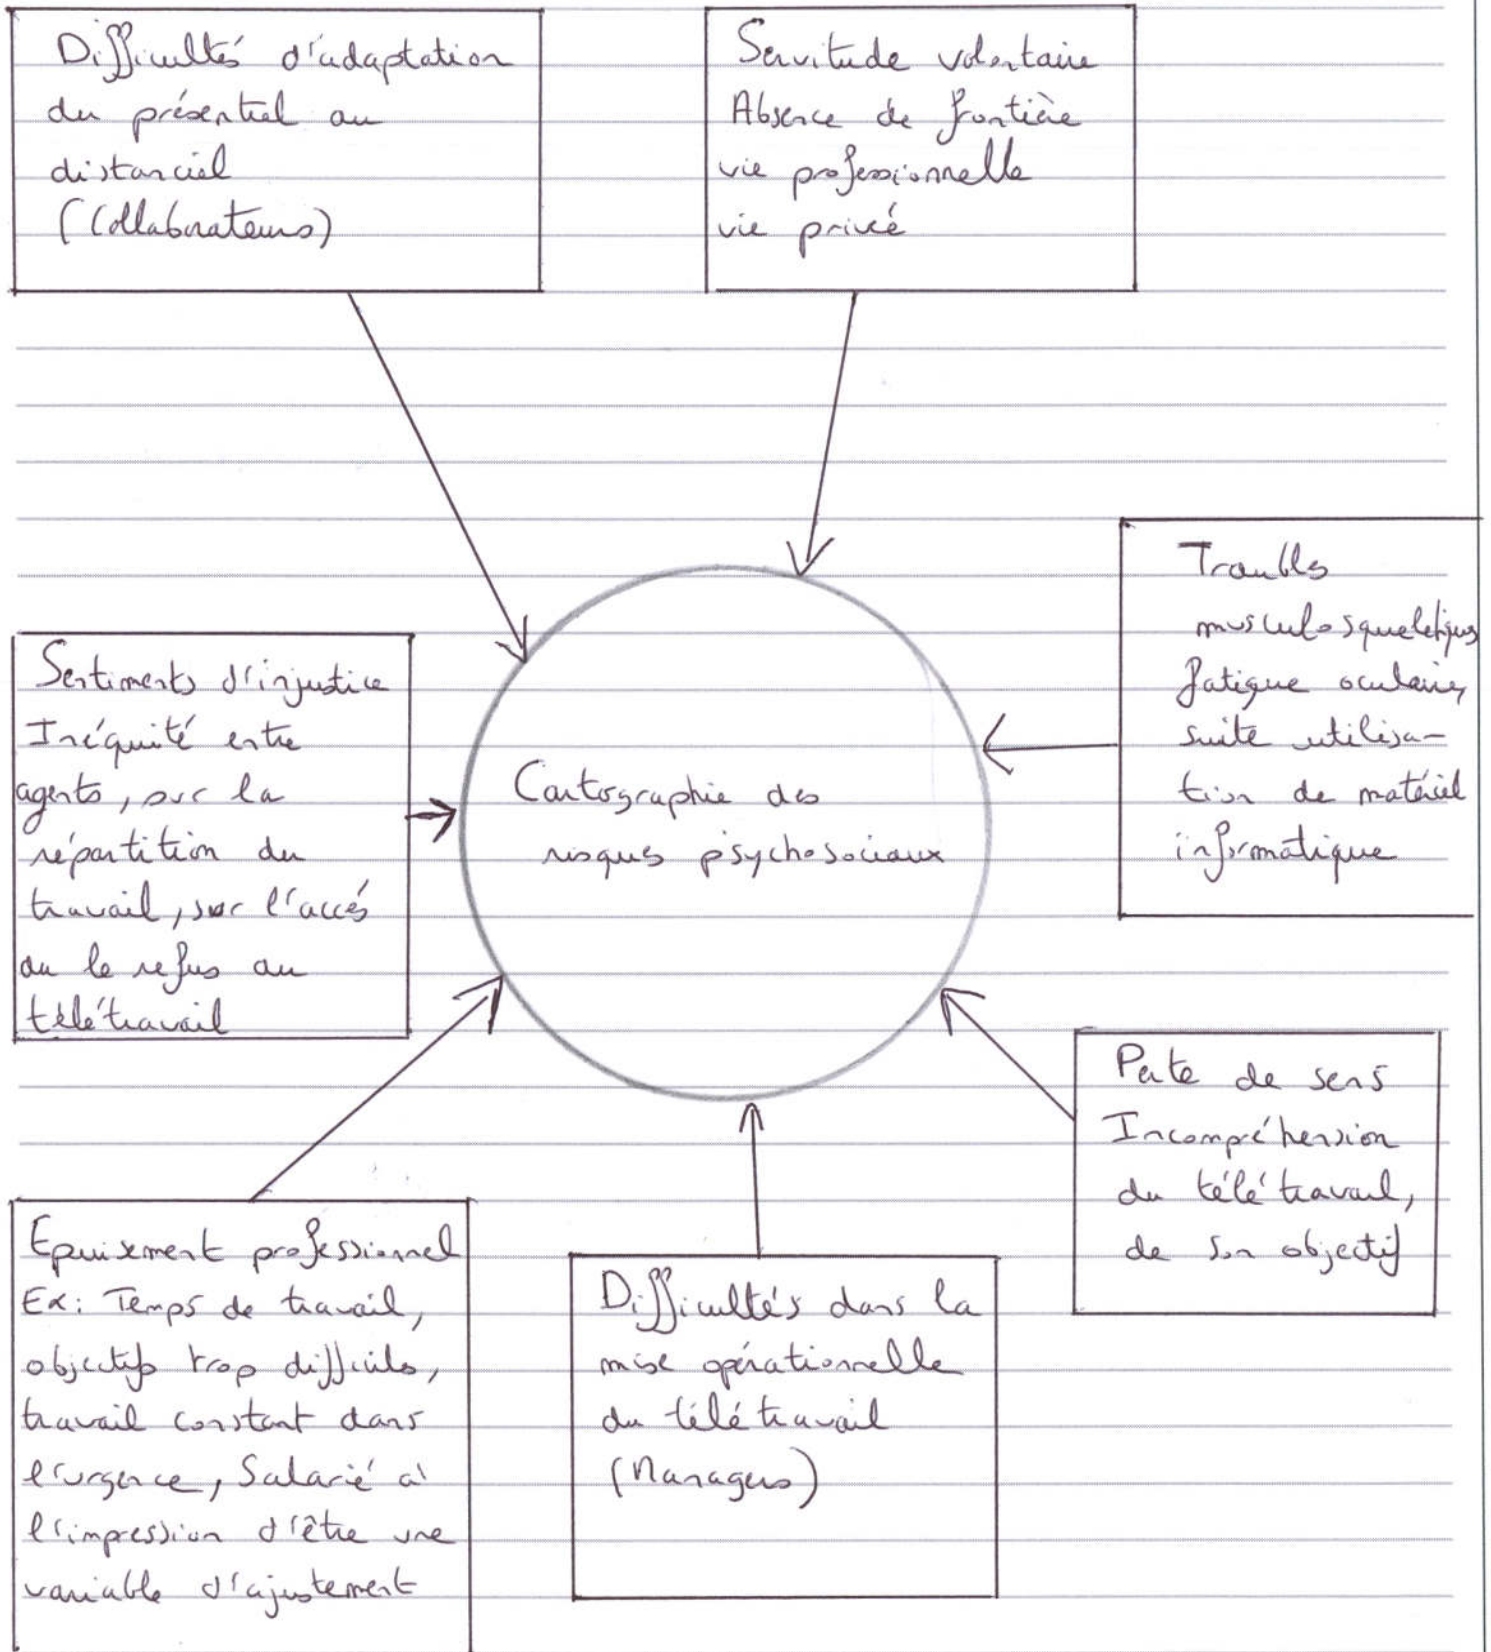 Difficultés d'adaptation
du présentiel au
distanciel
(Collaborateurs)
Servitude volontaire
Absence de frontière
vie professionnelle
vie privé
Troubles
musculosquelettiques
fatigue oculaire,
suite utilisa-
tion de matériel
informatique
Sentiments d'injustice
Inéquité entre
agents, sur la
répartition du
travail, sur l'accés
ou le refus au
télétravail
Cartographie des
risques psychosociaux
Perte de sens
Incompréhension
du télétravail,
de son objectif
Epuisement professionnel
Ex: Temps de travail,
objectifs trop difficiles,
travail constant dans
l'urgence, Salarié à
l'impression d'être une
variable d'ajustement
Difficultés dans la
mise opérationnelle
du télétravail
(Managers)